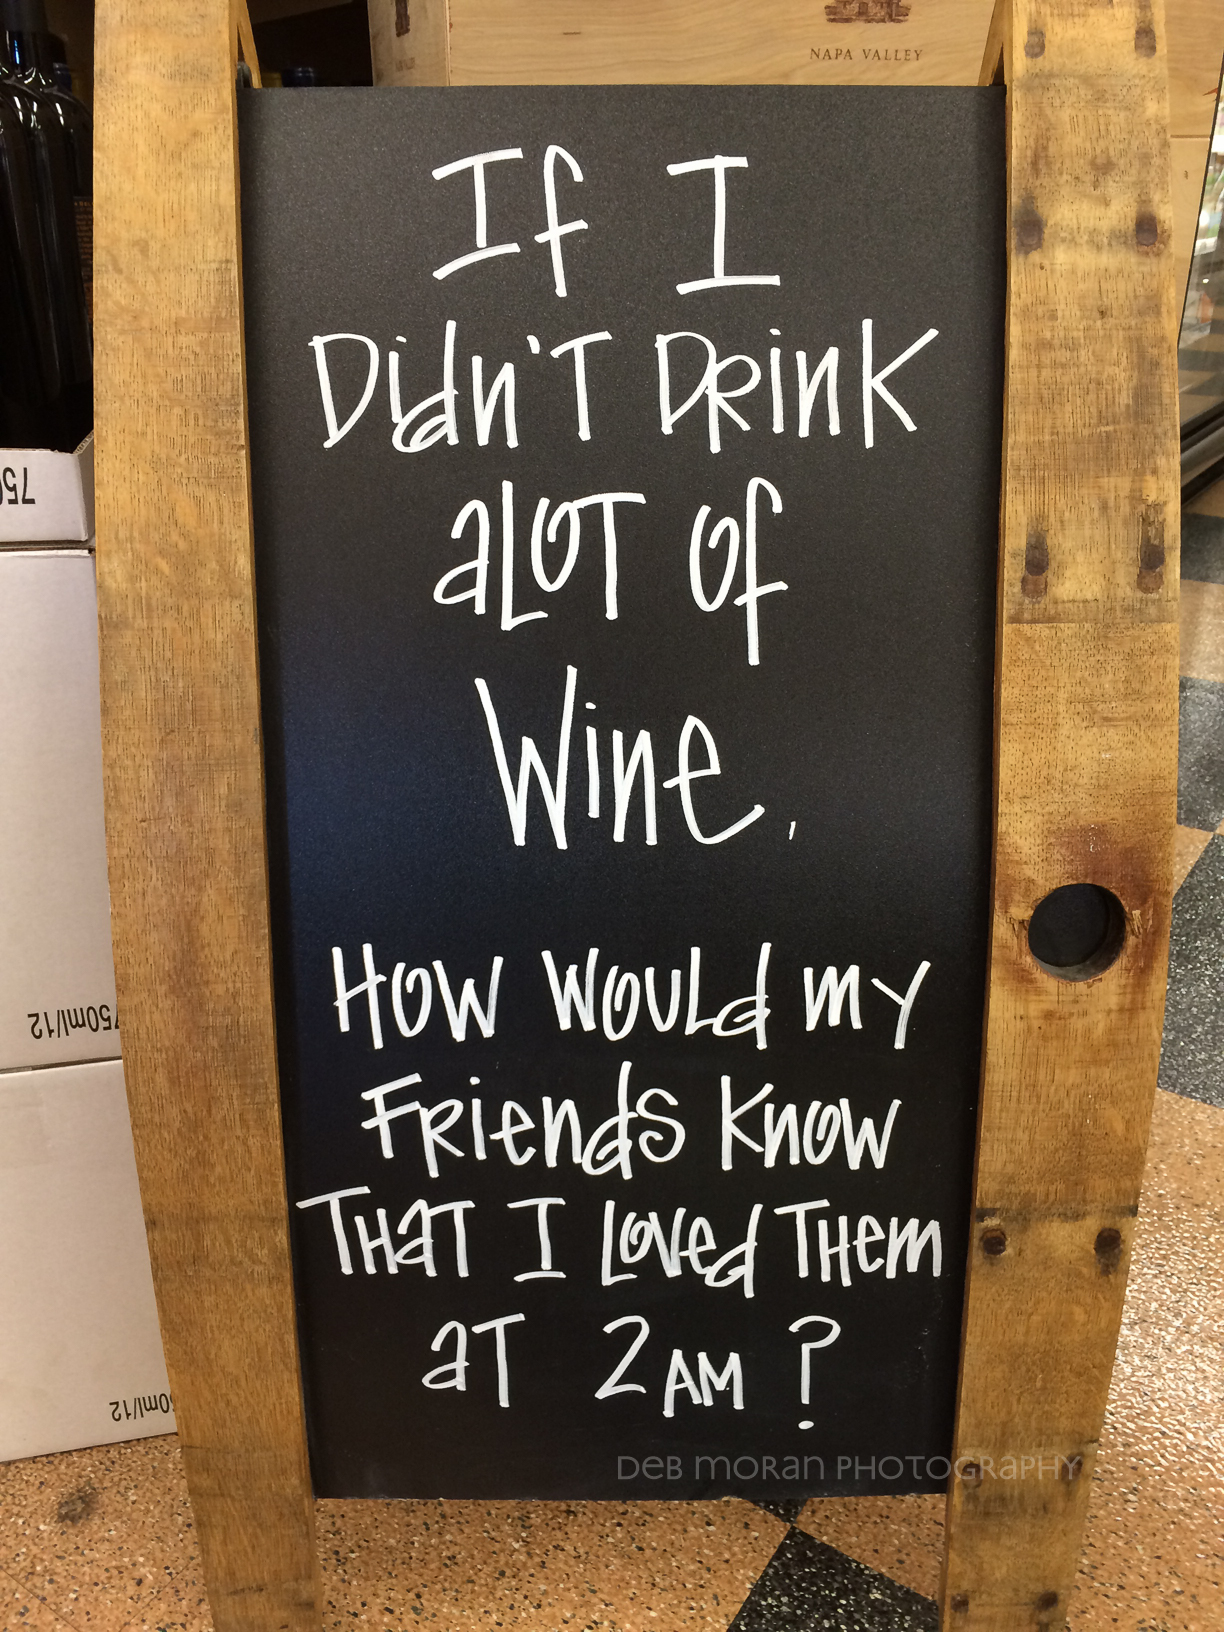 NAPA VALLEY
If I
Didn't Drink
aLOT of
Wine,
How would my
Friends Know
THaT I Loved THem
aT 2AM ?
750ml/12
50ml/12
DEB MORAN PHOTOGRAPHY